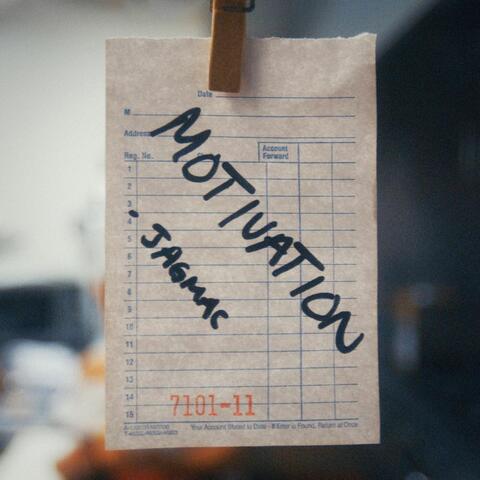 Date
M
Address
Reg. No.
Account
Forward
1
2
3
4
5
6
7
8
9
10
11
12
13
14
15
MOTIVATION
. JAGMAC
7101-11
Your Account Stated to Date - If Error is Found, Return at Once